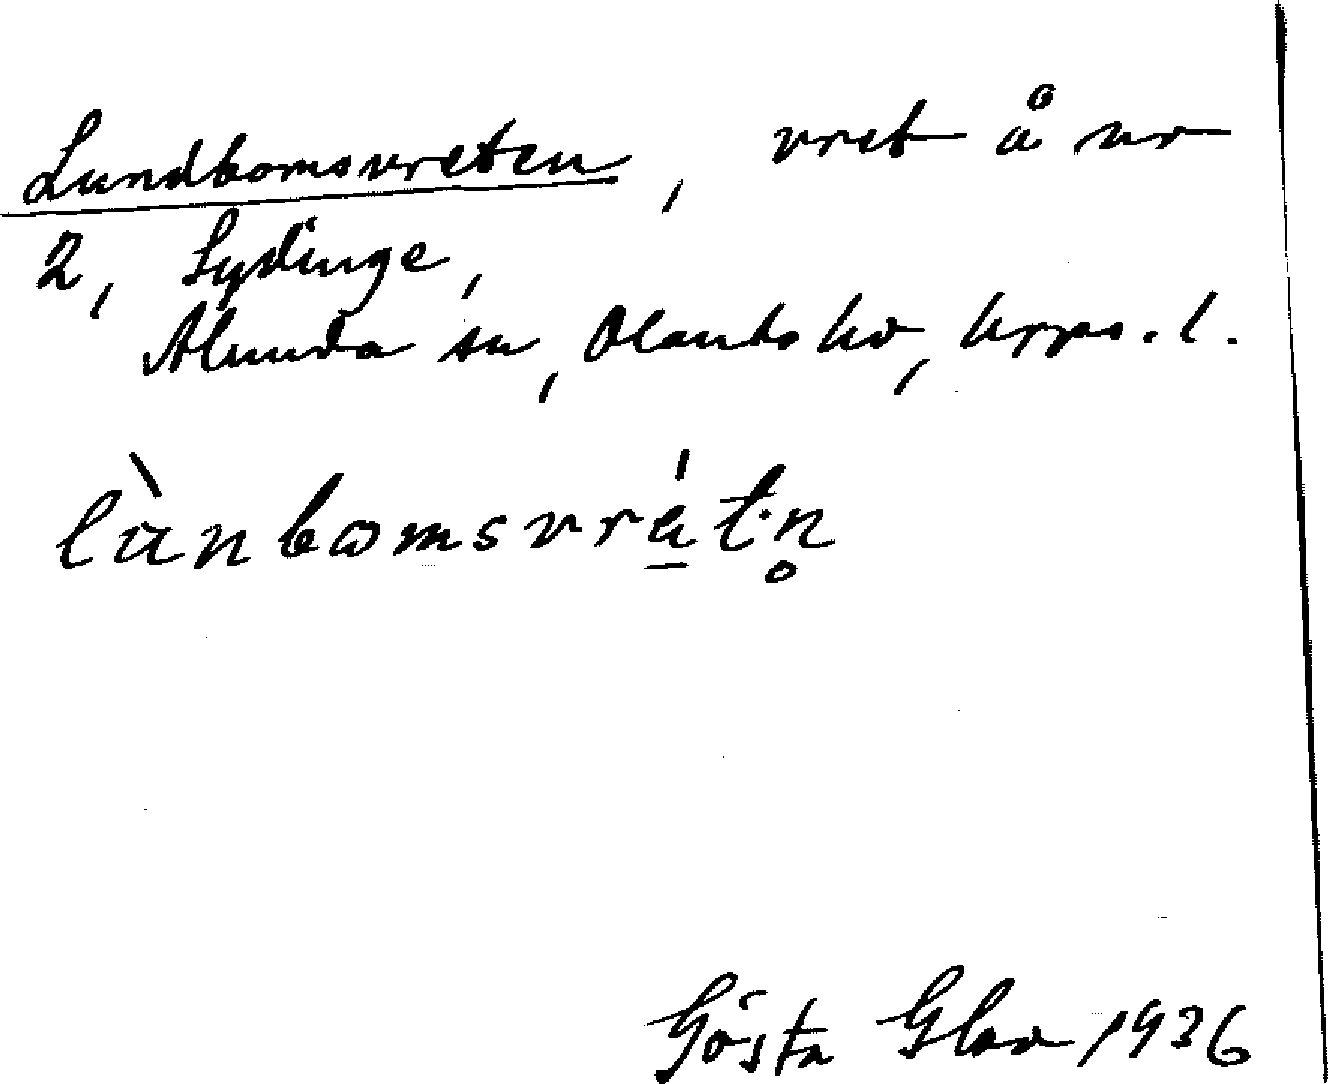 Lundbomsvreten, vret å nr
2, Sydinge,
Alunda sn, Olands hd, Upps. l.
lùnbomsvrét·n̥
Gösta Glad 1936